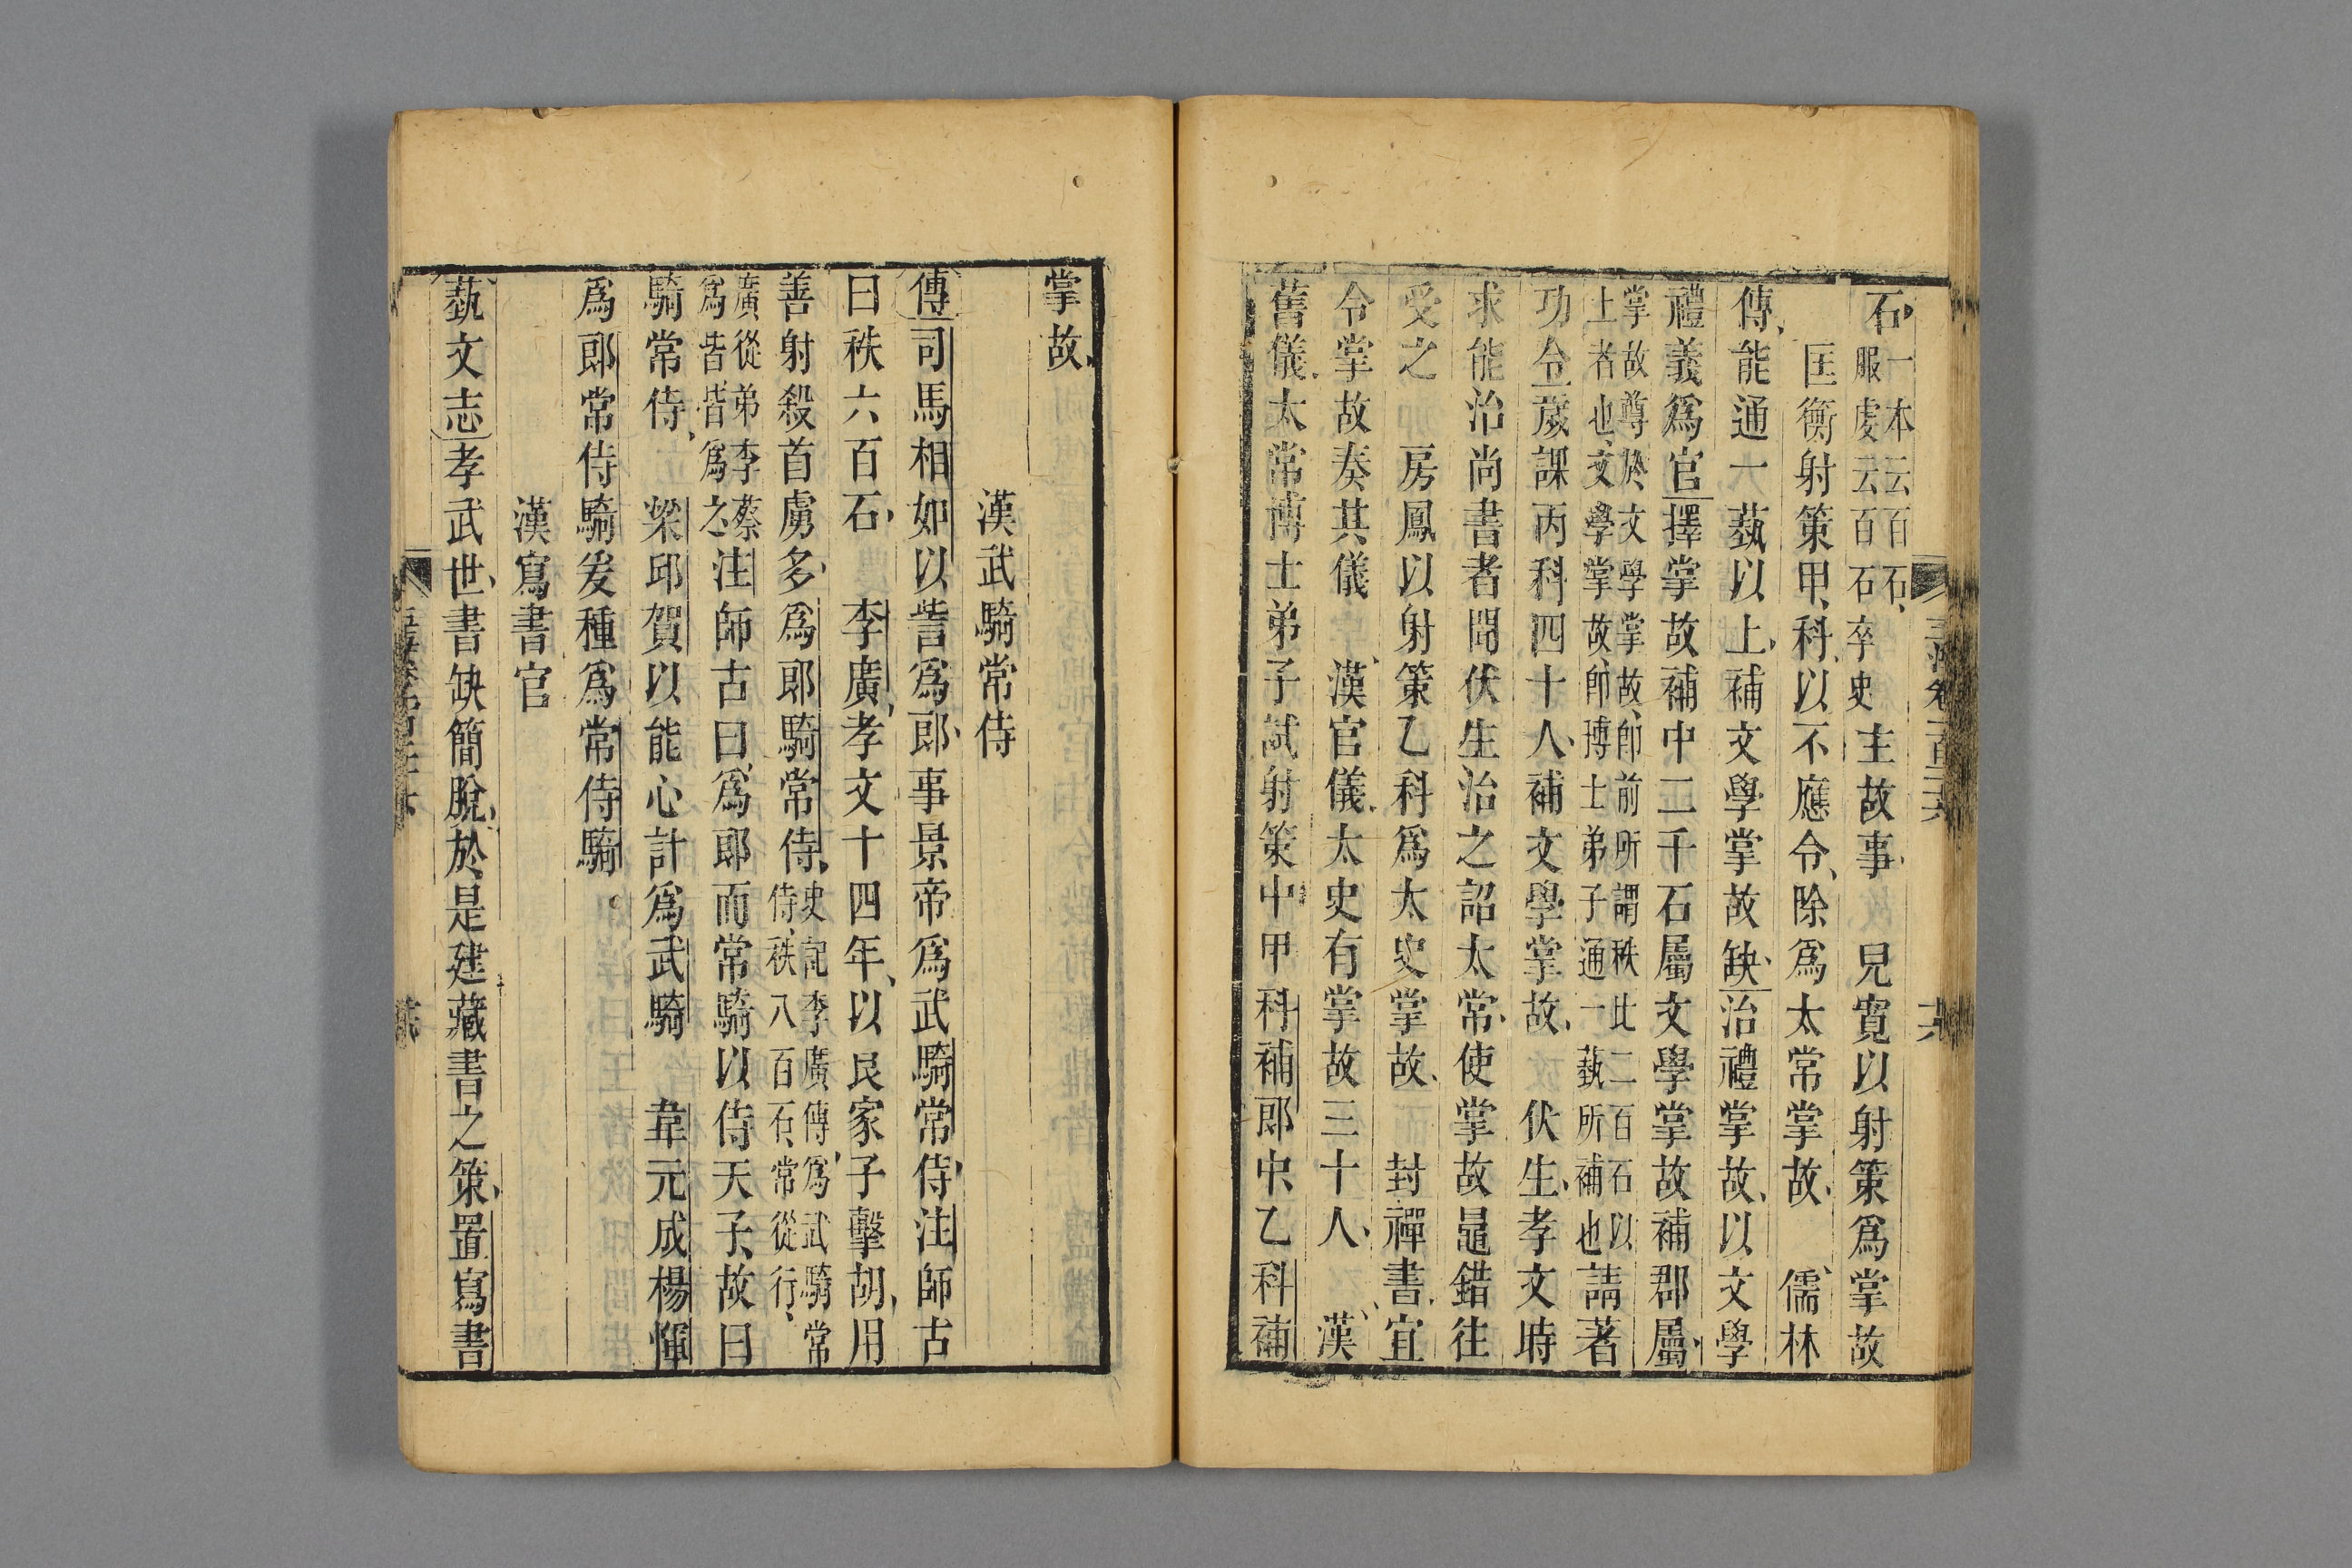 石一本云百石服虔云百石卒史主故事 兒寬以射策爲掌故
匡衡射策甲科以不應令除爲太常掌故 儒林
傳能通一蓺以上補文學掌故缺治禮掌故以文學
禮義爲官擇掌故補中二千石屬文學掌故補郡屬
掌故尊於文學掌故師前所謂秩此二百石以上者也文學掌故師博士弟子通一蓺所補也請著
功令歲課丙科四十人補文學掌故 伏生孝文時
求能治尚書者聞伏生治之詔太常使掌故鼂錯往
受之 房鳳以射策乙科爲太史掌故 封禪書宜
令掌故奏其儀 漢官儀太史有掌故三十人 漢
舊儀太常博士弟子試射策中甲科補郎中乙科補
掌故
漢武騎常侍
傳司馬相如以訾爲郎事景帝爲武騎常侍注師古
曰秩六百石 李廣孝文十四年以良家子擊胡用
善射殺首虜多爲郎騎常侍史記李廣傳爲武騎常侍秩八百石常從行
廣從弟李蔡爲皆皆爲之注師古曰爲郎而常騎以侍天子故曰
騎常侍 梁邱賀以能心計爲武騎 韋元成楊惲
爲郎常侍騎爰種爲常侍騎
漢寫書官
蓺文志孝武世書缺簡脫於是建藏書之策置寫書